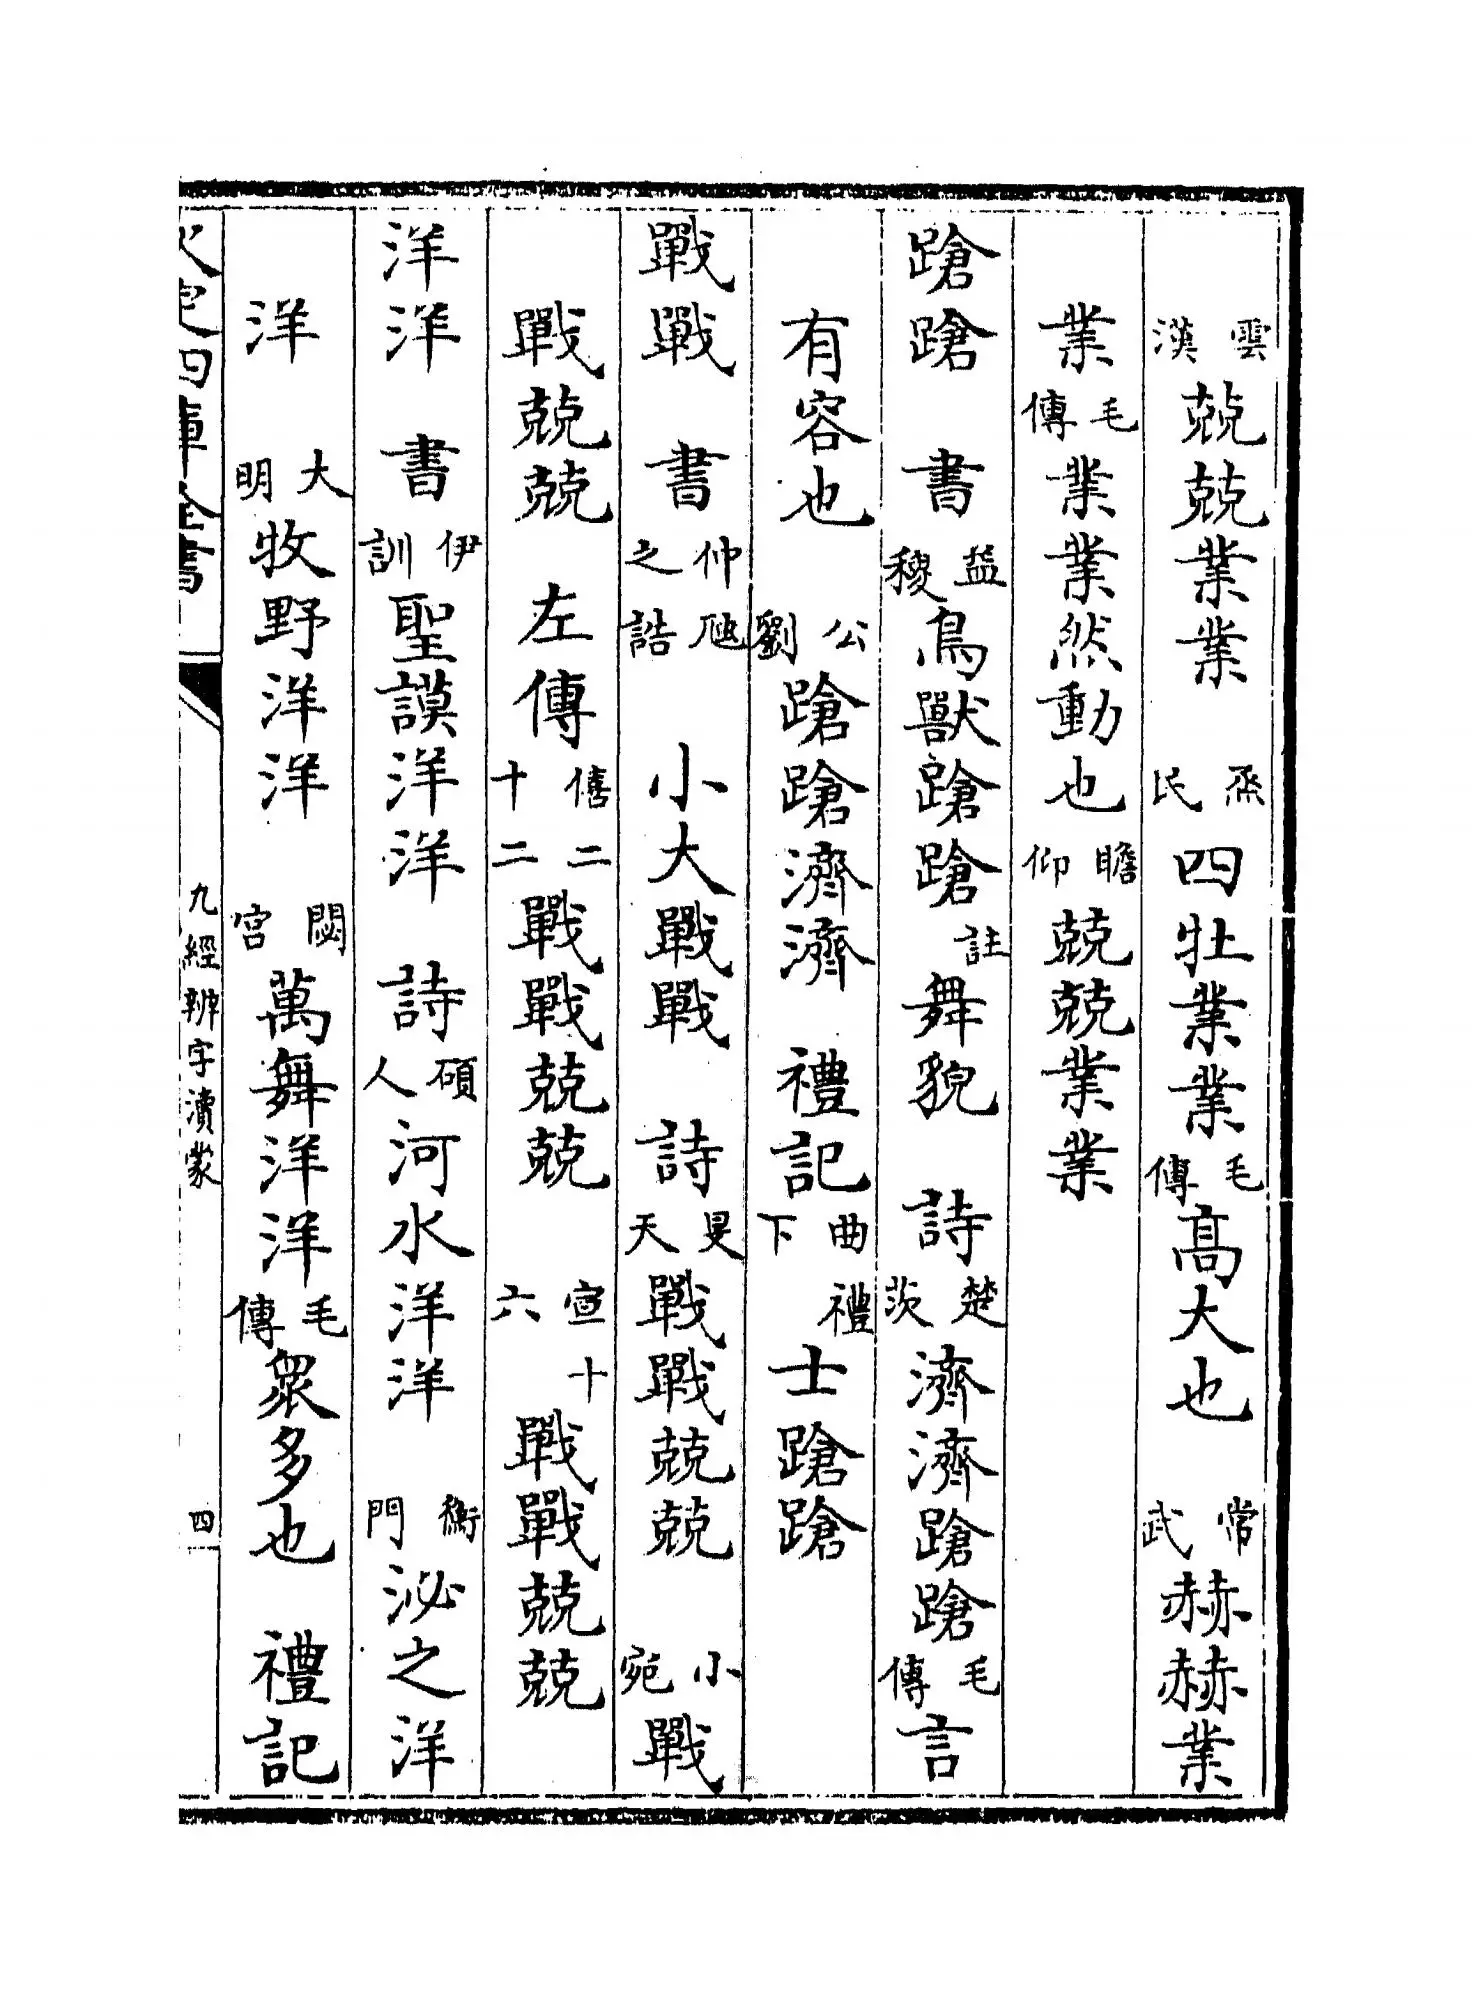 雲漢兢兢業業　烝民四牡業業毛傳高大也　常武赫赫業
業毛傳業業然動也瞻仰兢兢業業
蹌蹌　書益稷鳥獸蹌蹌註舞貌　詩楚茨濟濟蹌蹌毛傳言
有容也　公劉蹌蹌濟濟　禮記曲禮下士蹌蹌
戰戰　書仲虺之誥　小大戰戰　詩旻天戰戰兢兢　小宛戰
戰兢兢　左傳僖二十二戰戰兢兢　宣十六戰戰兢兢
洋洋　書伊訓聖謨洋洋　詩碩人河水洋洋　衡門泌之洋
洋　大明牧野洋洋　閟宮萬舞洋洋毛傳衆多也　禮記
欽定四庫全書　九經辨字瀆蒙　四